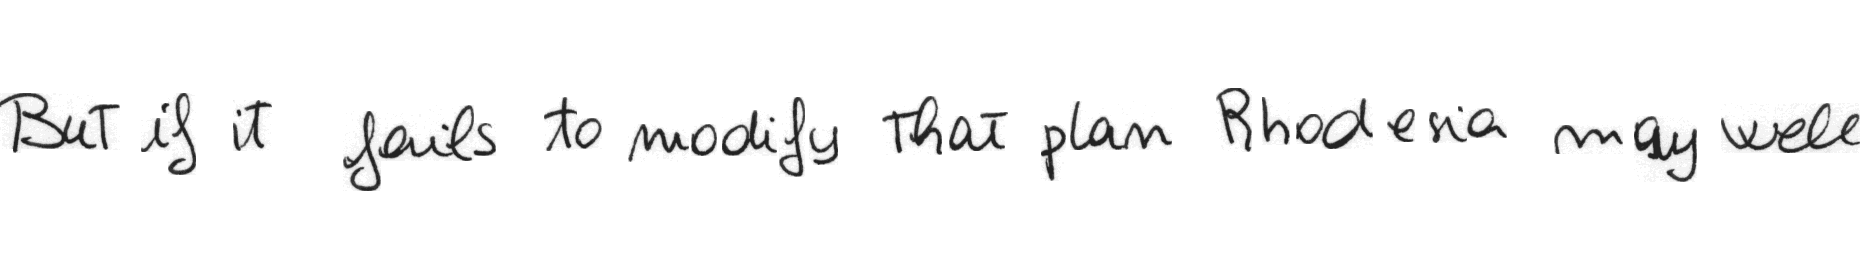 But if it fails to modify that plan Rhodesia may well